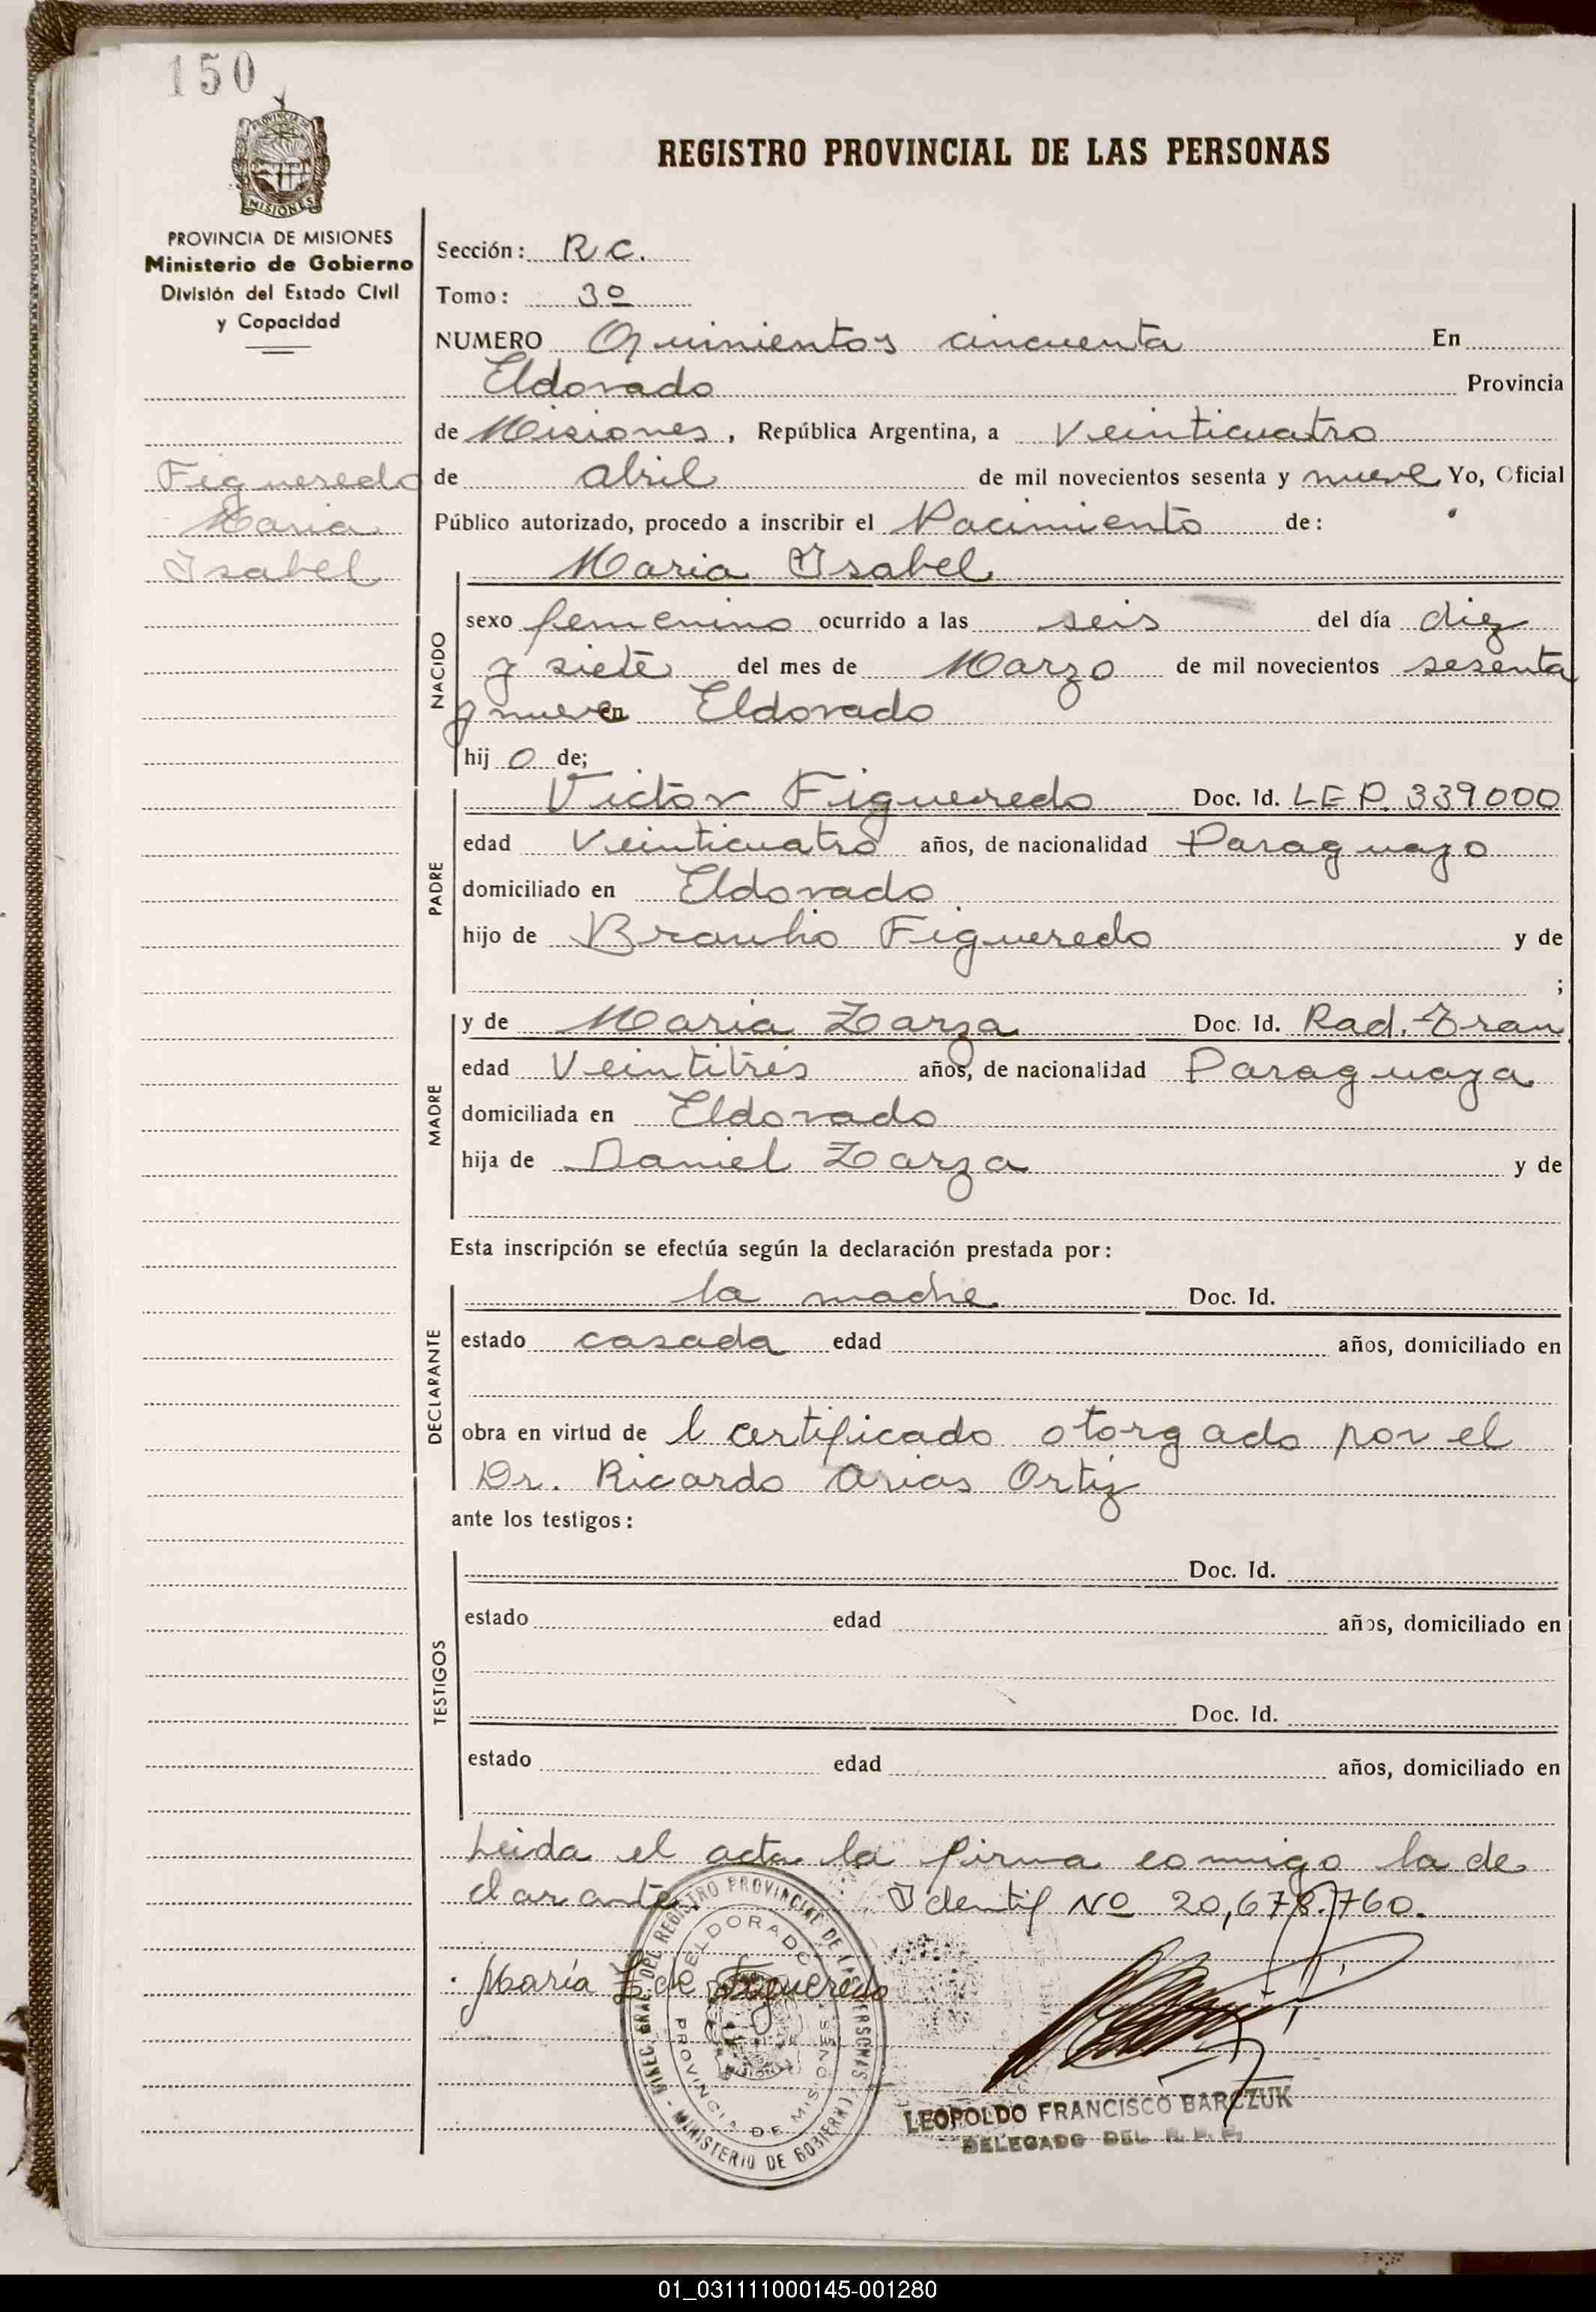 150
PROVINCIA DE
MISIONES
REGISTRO PROVINCIAL DE LAS PERSONAS
PROVINCIA DE MISIONES
Ministerio de Gobierno
División del Estado Civil
y Capacidad
Figueredo
Maria
Isabel
Sección: R.C.
Tomo: 3º
NUMERO Quinientos cincuenta En
Eldorado Provincia
de Misiones, República Argentina, a Veinticuatro
de abril de mil novecientos sesenta y nueve Yo, Oficial
Público autorizado, procedo a inscribir el Nacimiento de:
Maria Isabel
NACIDO
sexo femenino ocurrido a las seis del día diez
y siete del mes de Marzo de mil novecientos sesenta
y nueve en Eldorado
hij o de;
PADRE
Victor Figueredo Doc. Id. L E P. 339000
edad Veinticuatro años, de nacionalidad Paraguayo
domiciliado en Eldorado
hijo de Braulio Figueredo y de
;
MADRE
y de Maria Zarza Doc. Id. Rad. Tran
edad Veintitrés años, de nacionalidad Paraguaya
domiciliada en Eldorado
hija de Daniel Zarza y de
Esta inscripción se efectúa según la declaración prestada por:
DECLARANTE
la madre Doc. Id.
estado casada edad años, domiciliado en
obra en virtud de l certificado otorgado por el
Dr. Ricardo Arias Ortiz
ante los testigos:
TESTIGOS
Doc. Id.
estado edad años, domiciliado en
Doc. Id.
estado edad años, domiciliado en
Leida el acta la firma conmigo la de
clarante Identif Nº 20,678.760.
María Z de Figueredo
DIREC. GRAL. DEL REGISTRO PROVINCIAL DE LAS PERSONAS - MINISTERIO DE GOBIERNO -
ELDORADO
PROVINCIA DE MISIONES
LEOPOLDO FRANCISCO BARCZUK
DELEGADO DEL R. P. P.
01_031111000145-001280